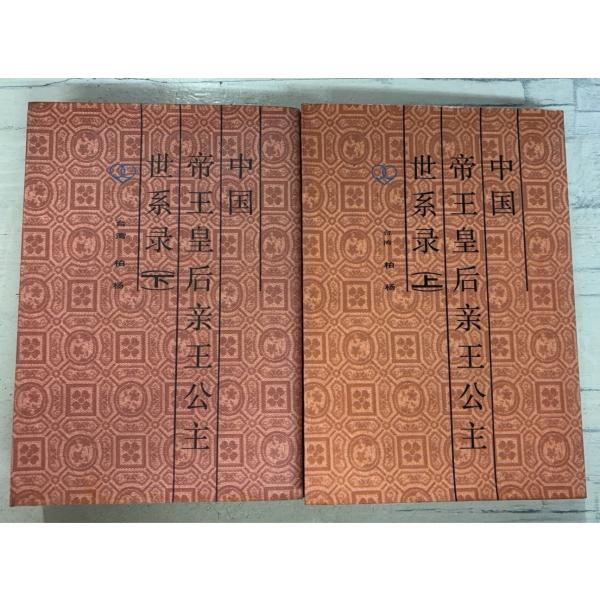 中国
帝王皇后亲王公主
世系录(下)
台湾 柏杨
中国
帝王皇后亲王公主
世系录(上)
台湾 柏杨